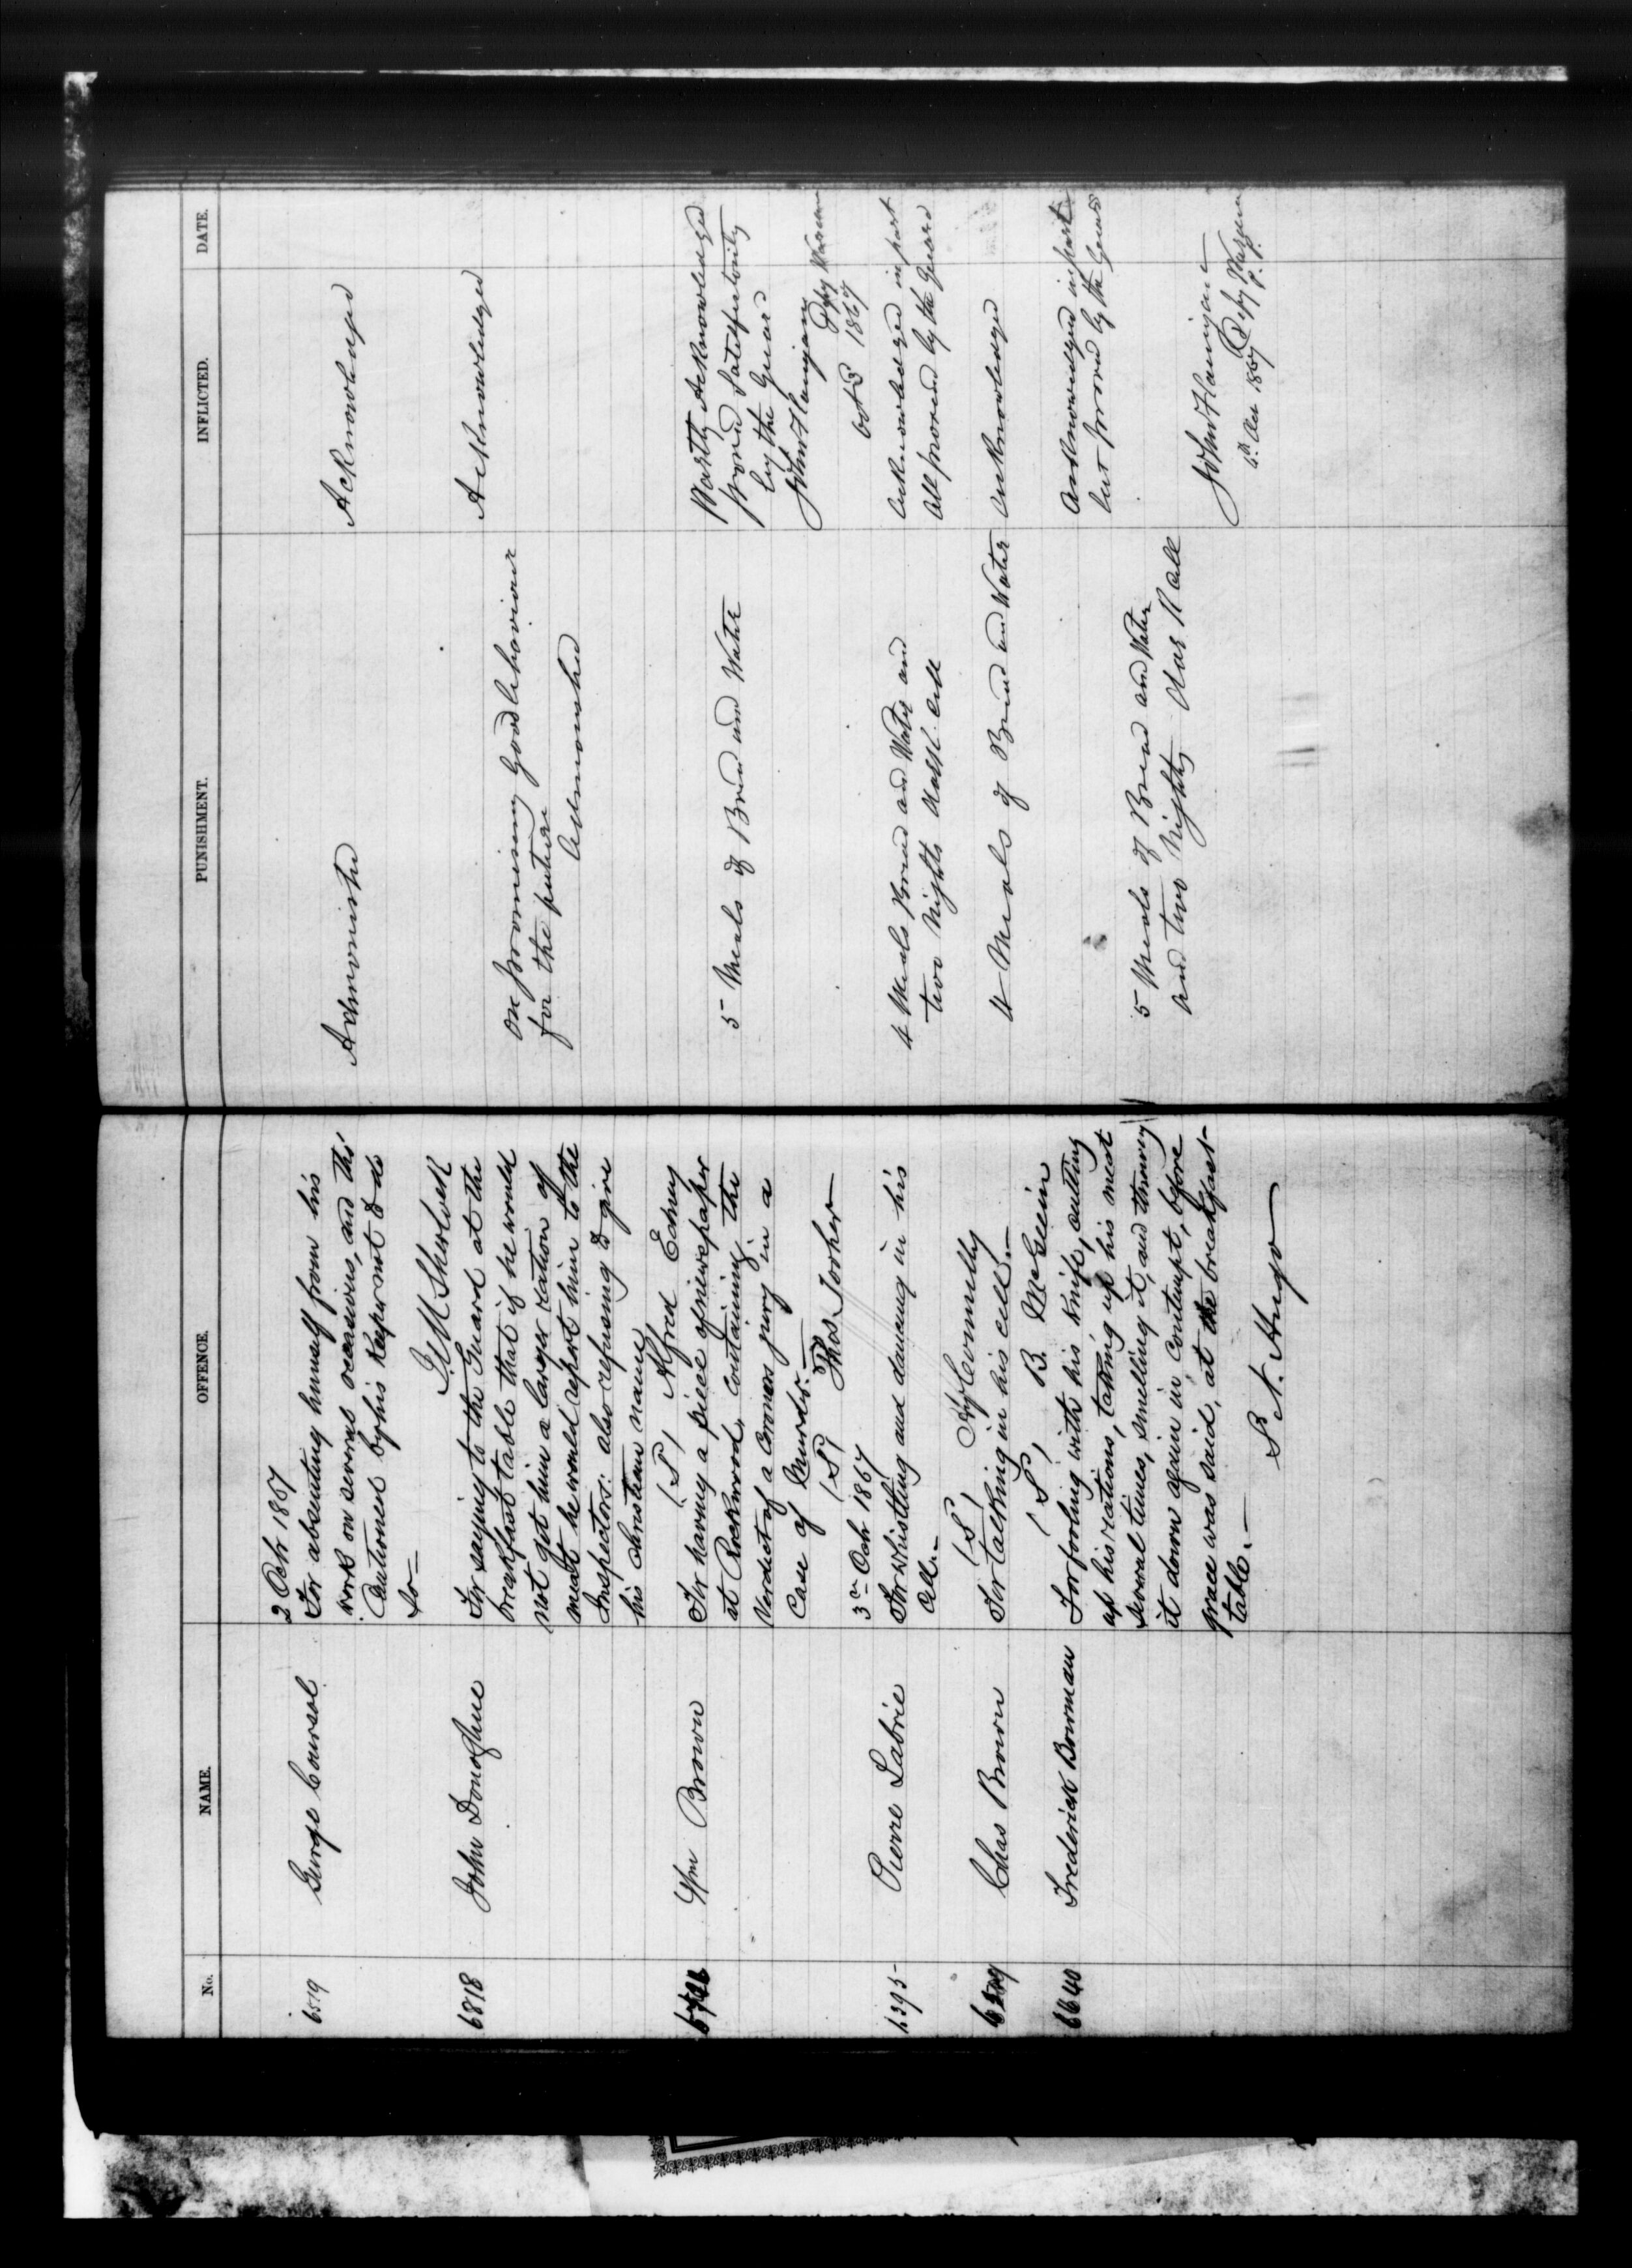 No. NAME. OFFENCE. PUNISHMENT. INFLICTED. DATE.
2 Octr 1867
6519 George Coursol For absenting himself from his
work on several occasions, and tho'
Cautioned by his Keeper not to do
so— Admonished Acknowledged
Sherlock
6818 John Donoghue For saying to the Guard at the
breakfast table that if he would
not get him a larger ration of
meat he would report him to the
Inspectors: also refusing to give
his christian name
On promising good behaviour
for the future
Admonished
Acknowledged
(S) Alfred Edney
Wm Brown For having a piece of newspaper
at Rockwood, containing the
Verdict of a Coroners jury in a
Case of Murder.—
5 Meals of Bread and Water
Partly Acknowledged
proved satisfactorily
by the Guard
John Flanigan
Dpy Warden
Oct 3 1867
(S) Thos Tooher
3rd Octr 1867
Pierre Labrie For whistling and dancing in his
Cell.—
4 Meals Bread and Water and
two Nights dark cell
Acknowledged in part
All proved by the Guard
(S) Connelly
Chas Brown For talking in his cell.—
4 Meals of Bread and Water
Acknowledged
(S) B. McGeein
6640 Frederick Bowman For fooling with his knife, cutting
up his rations, taking up his meat
several times, smelling it, and throwing
it down again in contempt, before
grace was said, at the breakfast-
table.—
5 Meals of Bread and Water
and two Nights dark cell
Acknowledged in part
but proved by the Guard
John Flanigan
Dpy Warden
P. P.
S. A. Hugo